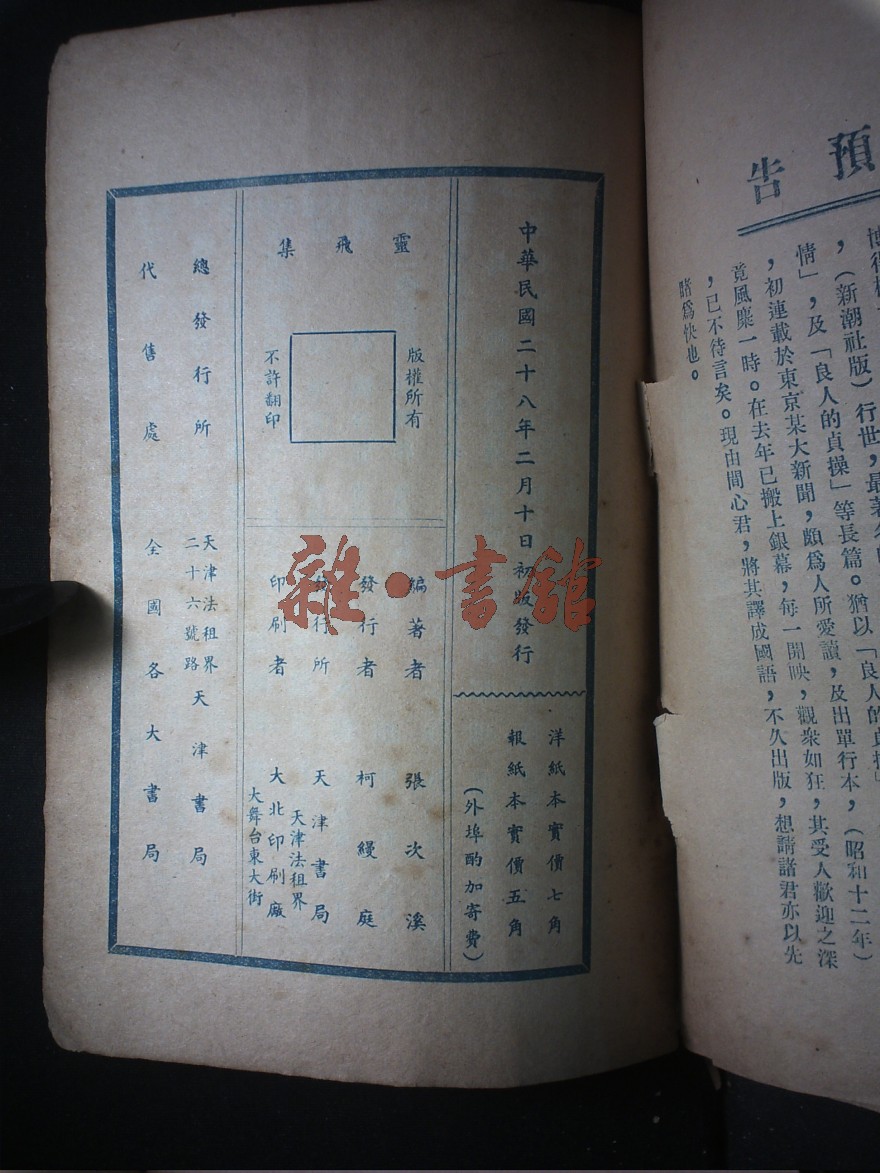 預告
，（新潮社版）行世，最著名的
情」，及「良人的貞操」等長篇。猶以「良人的貞操」
，初連載於東京某大新聞，頗爲人所愛讀，及出單行本，（昭和十二年）
竟風靡一時。在去年已搬上銀幕，每一開映，觀衆如狂，其受人歡迎之深
，已不待言矣。現由間心君，將其譯成國語，不久出版，想請諸君亦以先
睹爲快也。
中華民國二十八年二月十日初版發行
洋紙本實價七角
報紙本實價五角
（外埠酌加寄費）
靈飛集
版權所有
不許翻印
編著者 張次溪
發行者 柯縵庭
發行所 天津書局
天津法租界
印刷者 大北印刷廠
大舞台東大街
總發行所 天津法租界二十六號路 天津書局
代售處 全國各大書局
雜·書館